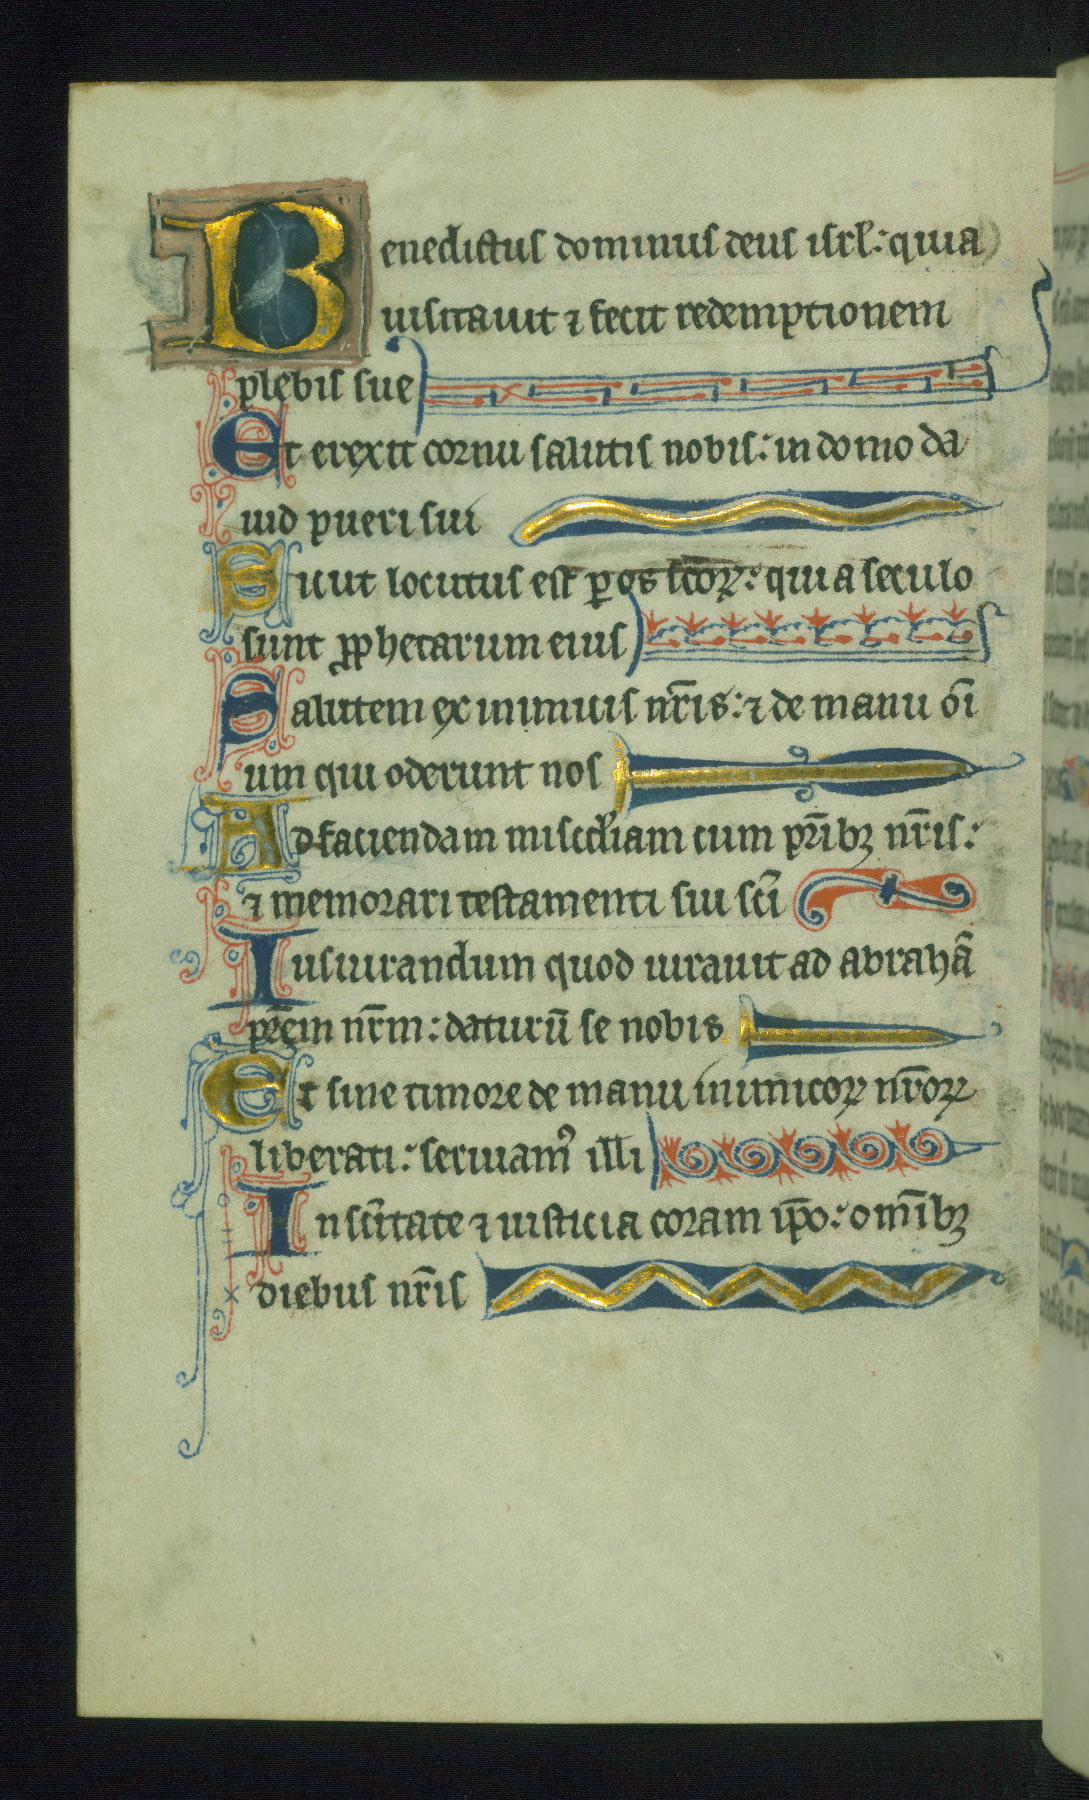 Benedictus dominus deus isrł: quia
uisitauit ⁊ fecit redemptionem
plebis sue
Et erexit cornu salutis nobis: in domo da
uid pueri sui
Sicut locutus est ꝑ os scõꝝ: qui a seculo
sunt ꝓphetarum eius
Salutem ex inimicis nr̃is: ⁊ de manu õi
um qui oderunt nos
Ad faciendam misc̃diam cum pr̃ibꝫ nr̃is:
⁊ memorari testamenti sui sc̃i
Iusiurandum quod iurauit ad abrahã
pr̃em nr̃m: daturũ se nobis
Et sine timore de manu inimicoꝝ nr̃oꝝ
liberati: seruiamꝰ illi
In sc̃itate ⁊ iusticia coram ip̃o: om̃ibꝫ
diebus nr̃is